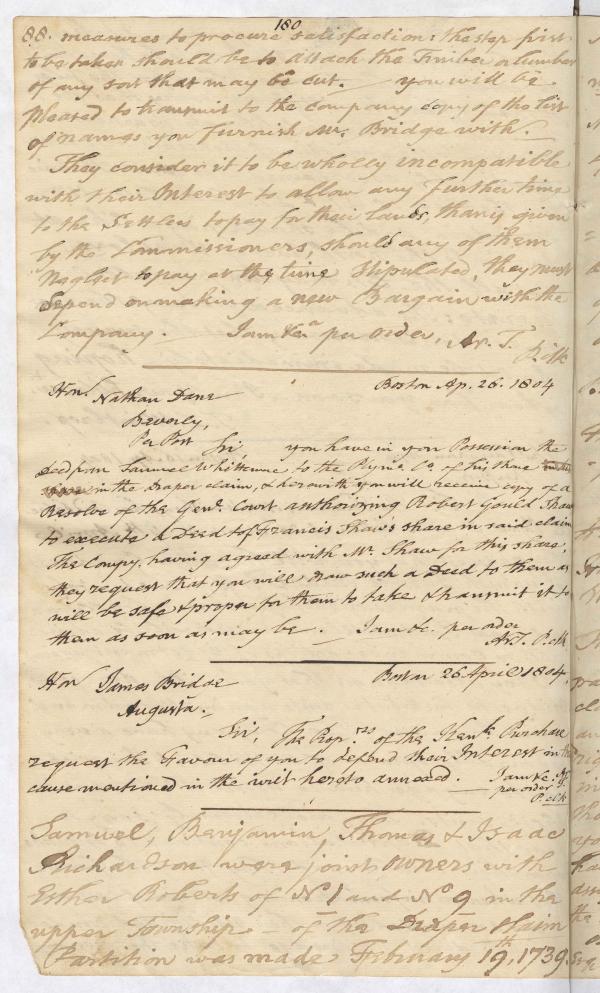 180
88. measures to procure satisfaction: the step first
to be taken should be to attach the Timber or lumber
of any sort that may be cut. you will be
pleased to transmit to the Company copy of the list
of names you furnish Mr. Bridge with.
They consider it to be wholly incompatible
with their Interest to allow any further time
to the Settlers to pay for their lands, than is given
by the Commissioners, should any of them
Neglect to pay at the time stipulated, they must
depend on making a new Bargain with the
Company. I am &ca per order, Ar. T.
P. Clk
Honl. Nathan Dane Boston Ap. 26. 1804
Beverly,
Per Post
Sir, you have in you Possession the
Deed from Samuel Whittemore to the Plymo. Co. of his share
in the Draper claim, & herewith you will receive copy of a
Resolve of the Genl. Court authorizing Robert Gould Shaw
to execute a Deed of Francis Shaw's share in said claim
The Compy. having agreed with Mr. Shaw for this share,
they request that you will draw such a Deed to them as
will be safe & proper for them to take & transmit it to
them as soon as may be. I am &c. per order
Ar. T. P. Clk
Hon James Bridge Boston 26 April 1804,
Augusta.
Sir, The Proprs. of the Kenbk. Purchase
request the Favour of you to defend their Interest in the
cause mentioned in the writ hereto annexed. I am &c.
per order
P. Clk
Samuel, Benjamin, Thomas & Isaac
Richardson were joint Owners with
Esther Roberts of No 1 and No 9 in the
upper Township of the Draper Claim
Partition was made February 19th, 1739.